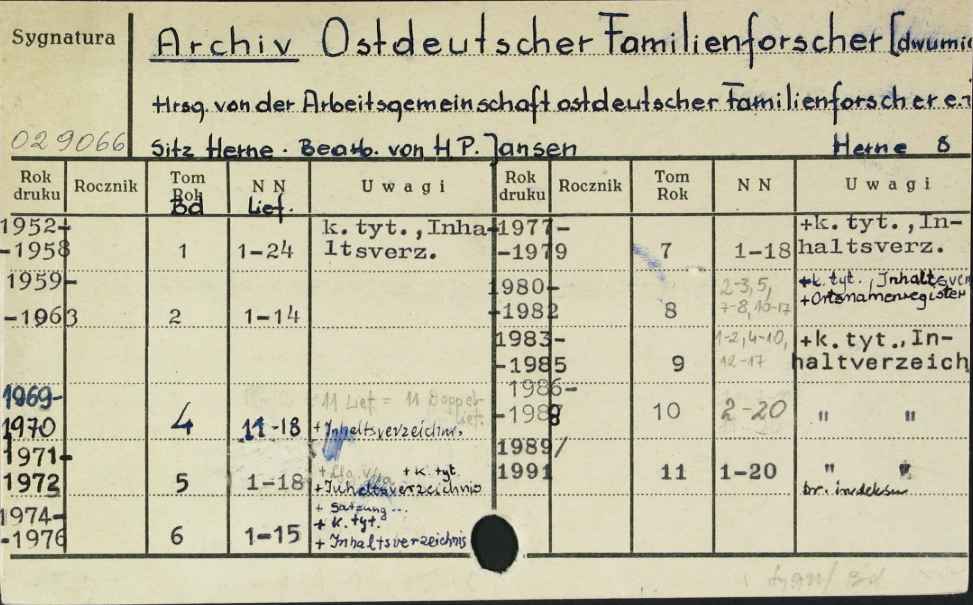 Sygnatura
Archiv Ostdeutscher Familienforscher [dwumie
Hrsg. von der Arbeitsgemeinschaft ostdeutscher Familienforscher e.
029066 Sitz Herne. Bearb. von H P. Jansen Herne 8
Rok druku Rocznik Tom Rok Bd N N Lief. Uwagi Rok druku Rocznik Tom Rok N N Uwagi
1952- k. tyt., Inha- 1977- +k. tyt., In-
-1958 1 1-24 ltsverz. -1979 7 1-18 haltsverz.
1959- 1980- 2-3,5, +k. tyt., Inhaltsver
+Ortsnamenregister
-1963 2 1-14 -1982 8 7-8,10-17
1983- 1-2,4-10, +k. tyt., In-
-1985 9 12-17 haltverzeich
1969- 11 Lief = 11 Doppel 1986-
lief.
1970 4 11-18 +Inhaltsverzeichnis -1988 10 2-20 " "
1971- + k. tyt. 1989/
1972 5 1-18 +Inhaltsverzeichnis 1991 11 1-20 " "
br. indeksu
1974- + Satzung...
+ k. tyt.
-1976 6 1-15 + Inhaltsverzeichnis